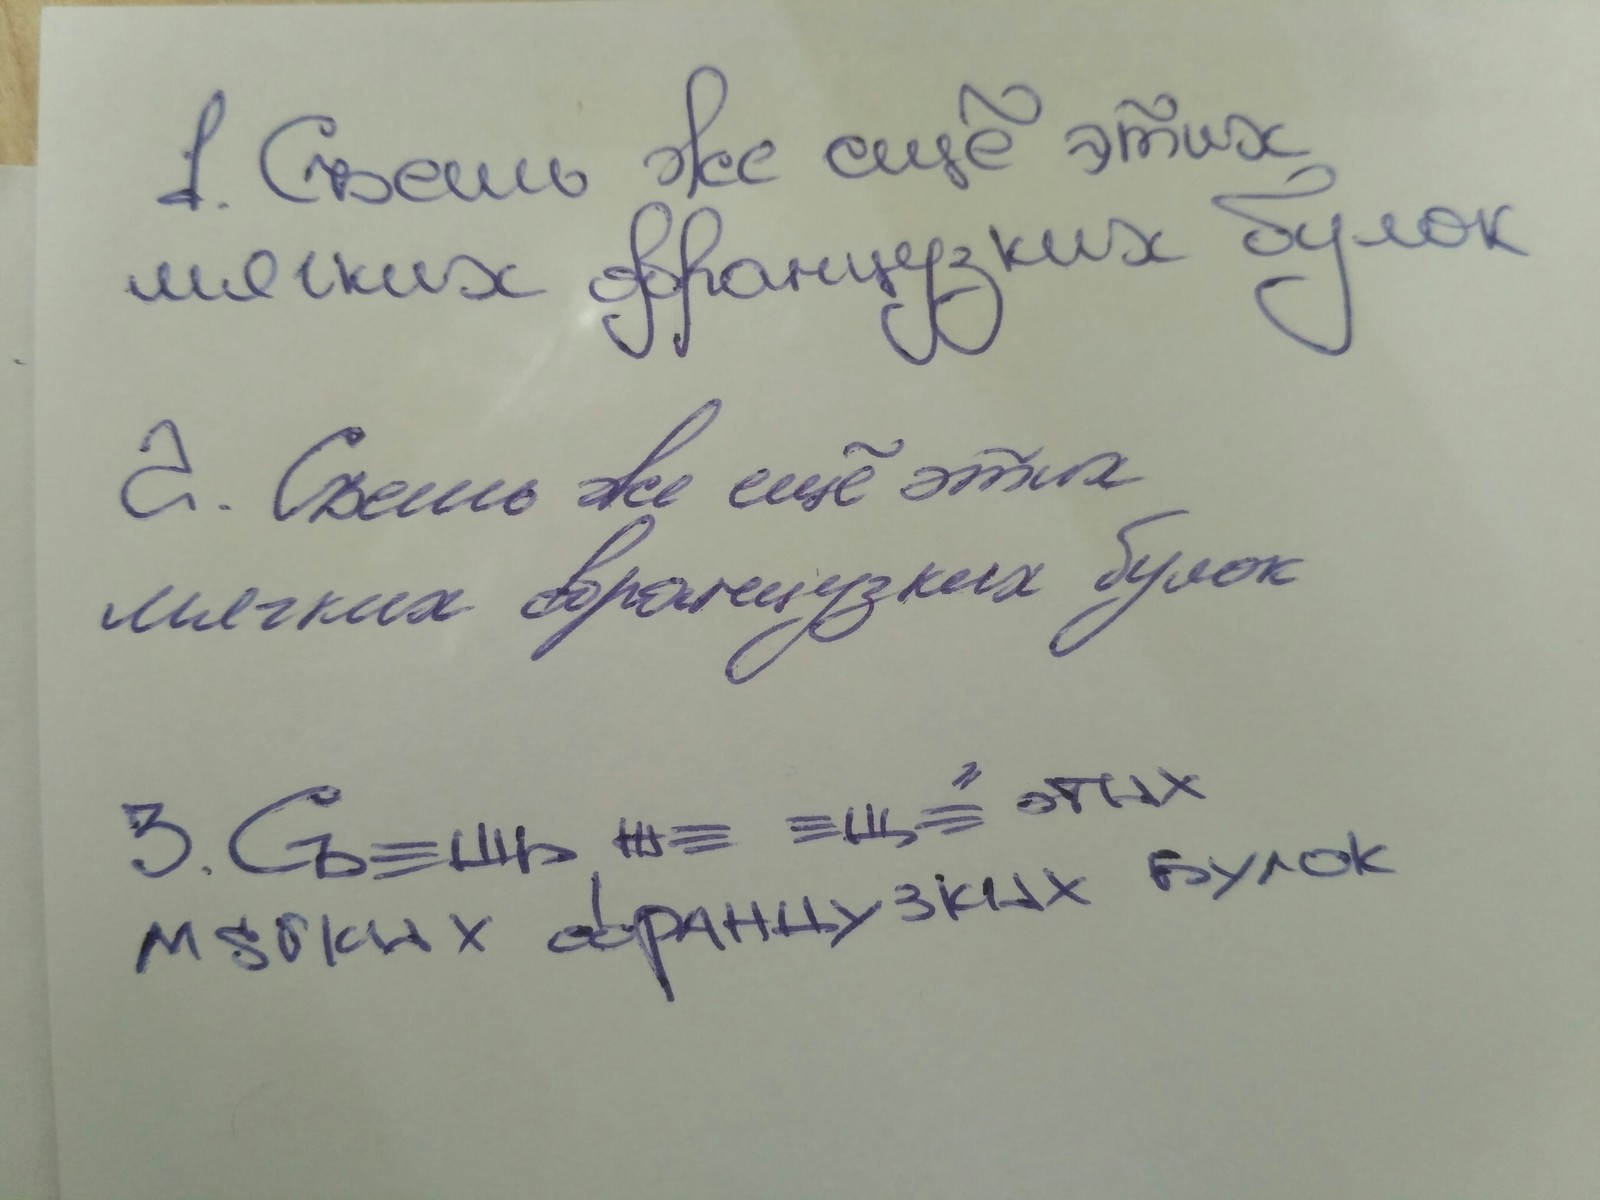 1. Съешь же ещё этих
мягких французких булок
2. Съешь же ещё этих
мягких французких булок
3. Съешь же ещё этих
мягких французких булок